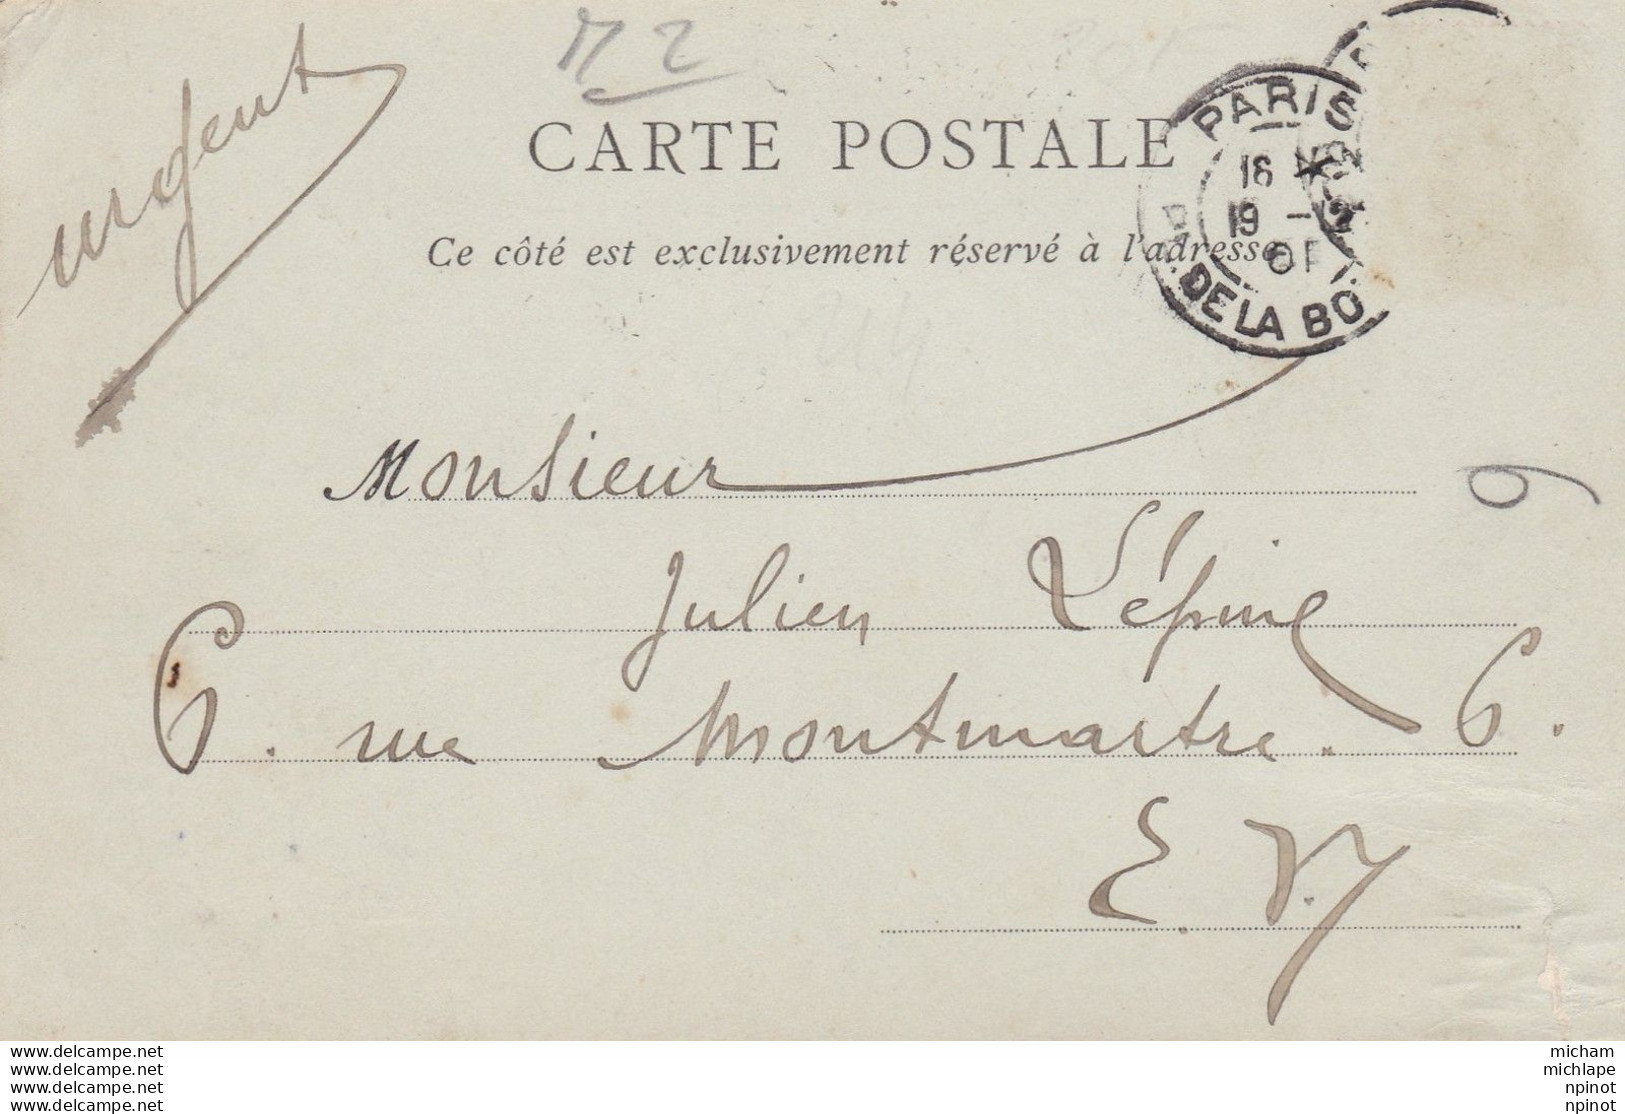 urgent
CARTE POSTALE
Ce côté est exclusivement réservé à l'adresse
PARIS
16
19 - 2
01
DE LA BO
Monsieur
9
Julien Lépine
6. rue Montmartre. 6.
E. V.
www.delcampe.net
www.delcampe.net
www.delcampe.net
www.delcampe.net
micham
michlape
npinot
npinot